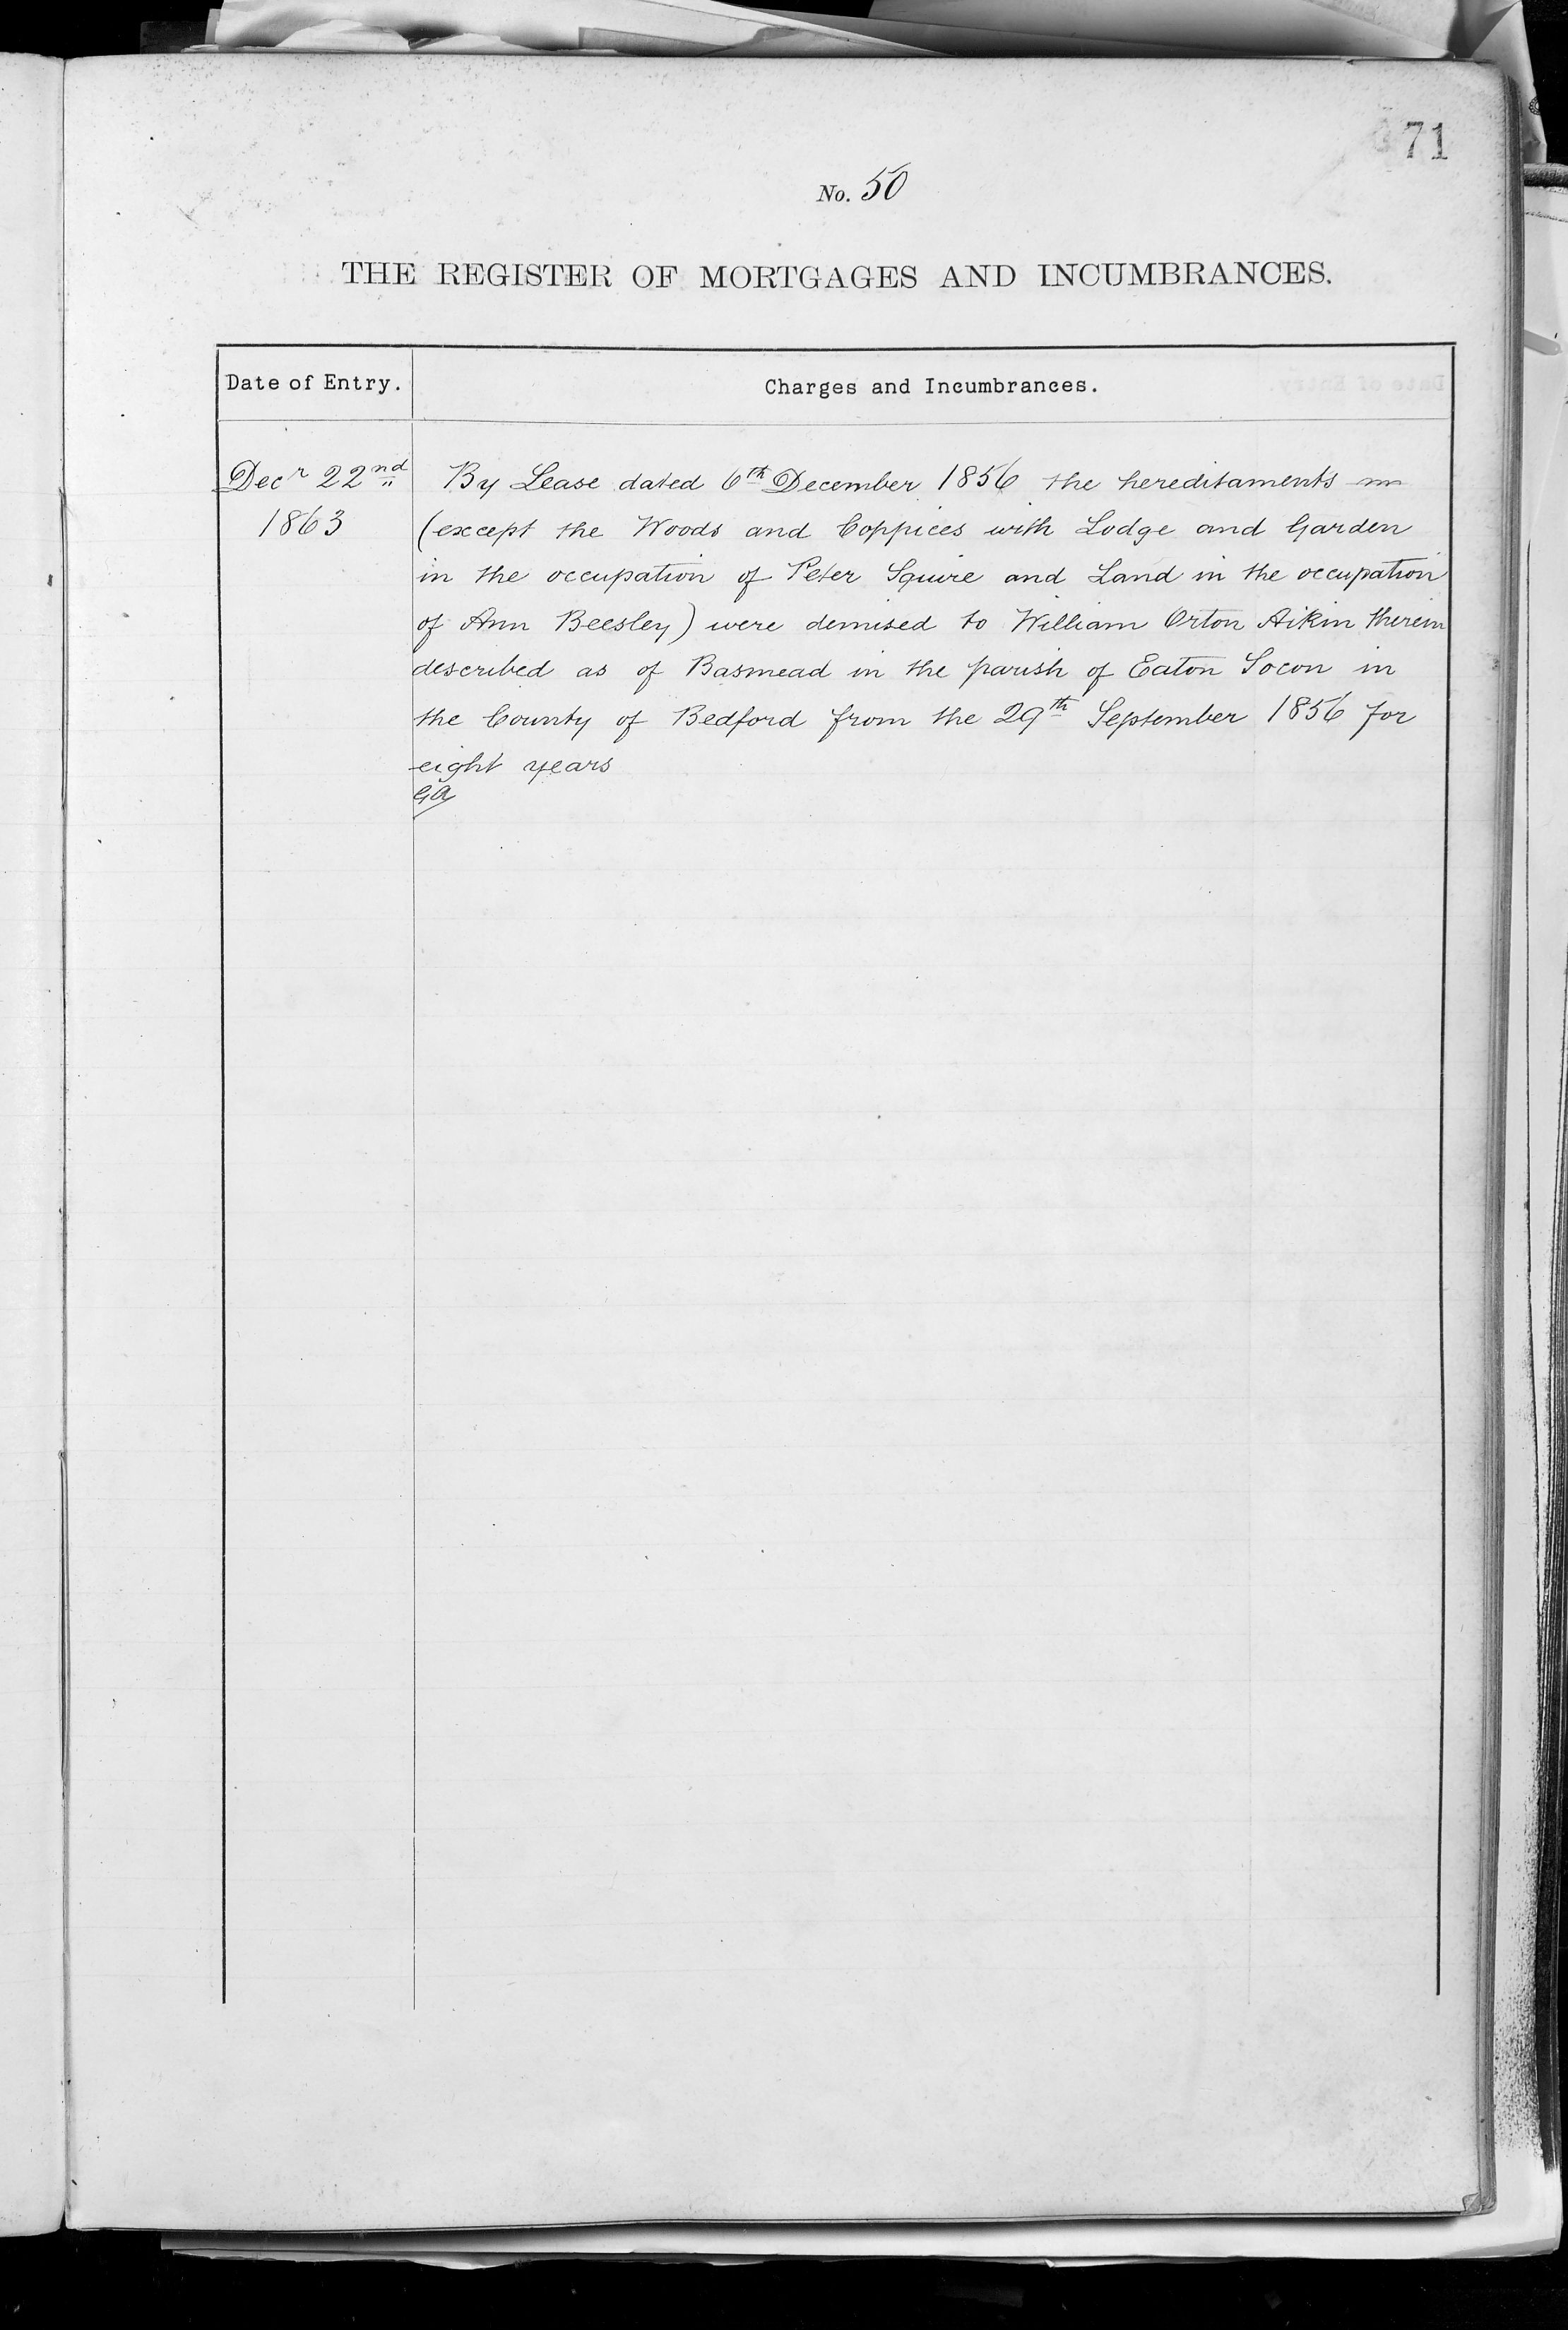 71
No. 50
THE REGISTER OF MORTGAGES AND INCUMBRANCES.
Date of Entry.
Charges and Incumbrances.
Decr 22nd
1863
By Lease dated 6th December 1856 the hereditaments
(except the Woods and Coppices with Lodge and Garden
in the occupation of Peter Squire and Land in the occupation
of Ann Beesley) were demised to William Orton Aikin therein
described as of Basmead in the parish of Eaton Socon in
the County of Bedford from the 29th September 1856 for
eight years
GA